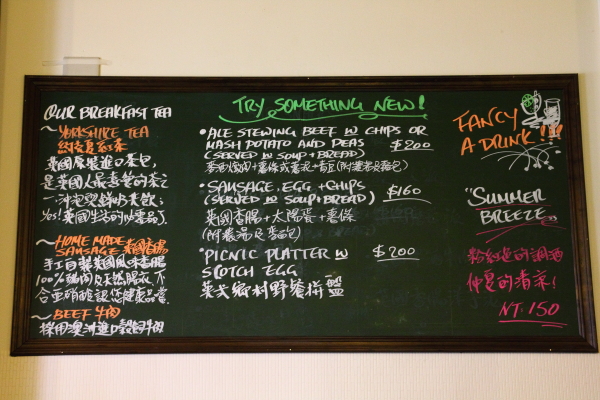 OUR BREAKFAST TEA
~YORKSHIRE TEA
約克夏紅茶
英國原裝進口茶包,
是英國人最喜愛的茶之
一,沖泡鮮奶
Yes! 英國生活的必需品了.
~HOME MADE
SAUSAGE 英國香腸
手工自製英國風味香腸
100%豬肉及天然腸衣,不
含亞硝酸
~BEEF 牛肉
採用澳洲進口穀飼牛肉
TRY SOMETHING NEW!
•ALE STEWING BEEF W CHIPS OR
MASH POTATO AND PEAS $200
(SERVED W SOUP+BREAD)
•SAUSAGE, EGG +CHIPS $160
(SERVED W SOUP+BREAD)
英國香腸+太陽蛋+薯條
(附濃湯及麵包)
•PICNIC PLATTER W $200
SCOTCH EGG
英式鄉村野餐拼盤
FANCY
A DRINK!!!
"SUMMER
BREEZE"
粉紅色的調酒
仲夏的清涼!
NT.150